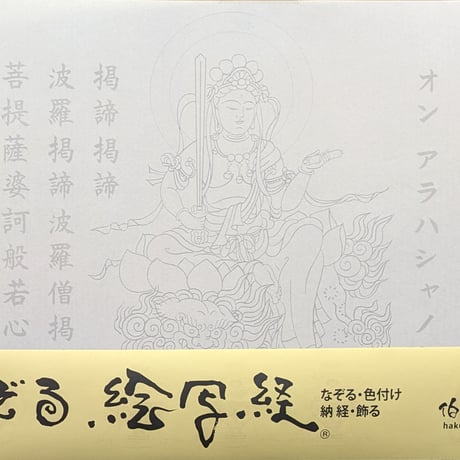 オン アラハシャノ
掲諦掲諦
波羅掲諦波羅僧掲
菩提薩婆訶般若心
ぞる 絵写経®
なぞる・色付け
納経・飾る
伯
haku